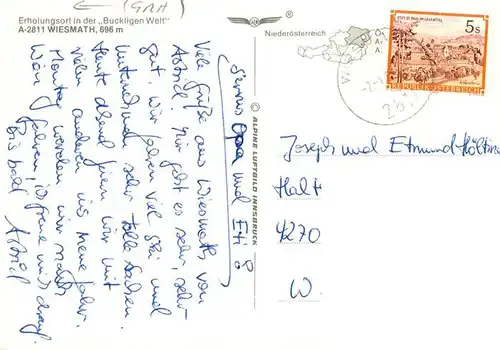 (GRA)
Erholungsort in der „Buckligen Welt"
A-2811 WIESMATH, 696 m
Niederösterreich
STIFT ST. PAUL IM LAVANTTAL
5s
REPUBLIK ÖSTERREICH
© ALPINE LUFTBILD INNSBRUCK
Servus Opa und Eti!
Viele Grüße aus Wiesmath, von
Astrid. Mir geht es sehr, sehr
gut. Wir fahren viel Ski und
unternehmen sehr tolle Sachen
Heute abend feiern wir mit
vielen anderen ins neue Jahr.
Montag werden wir nach
Wien fahren, ich freue mich drauf.
Bis bald Astrid
Joseph und Etmund
Halt
4270
W.